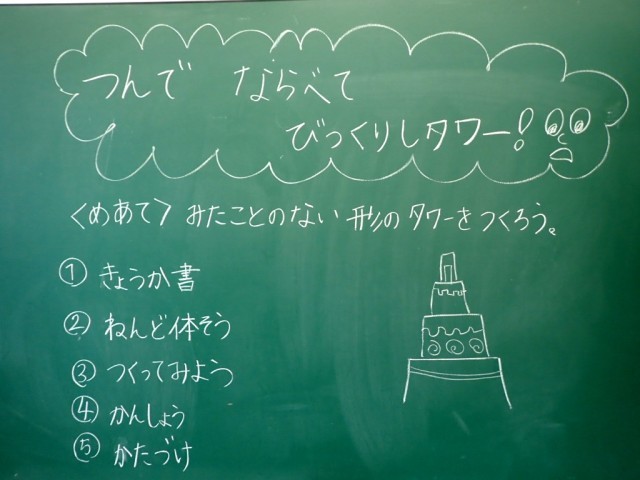 つんで ならべて
びっくりしタワー!
<めあて> みたことのない 形の タワーを つくろう。
① きょうか書
② ねんど体そう
③ つくってみよう
④ かんしょう
⑤ かたづけ